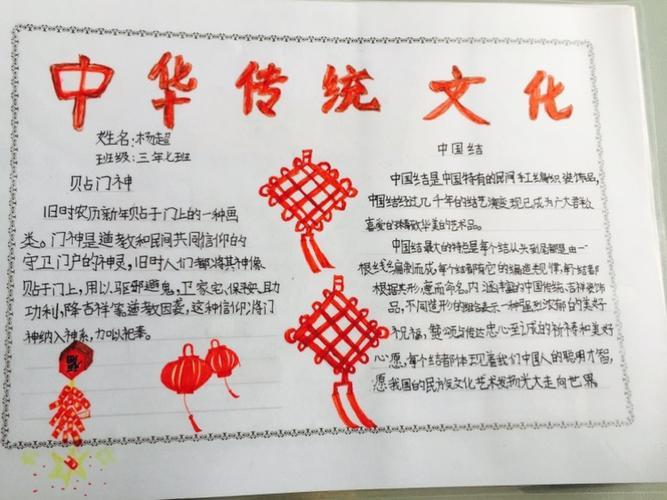 中华传统文化
姓名:杨超
班级:三年七班
贴门神
旧时农历新年贴于门上的一种画
类。门神是道教和民间共同信仰的
守卫门户的神灵,旧时人们都将其神像
贴于门上,用以驱邪避鬼,卫家宅、保平安、助
功利、降吉祥等,道教因袭这种信仰,将门
神纳入神系,加以祀奉。
中国结
中国结是中国特有的民间手工编织装饰品,
中国结经过几千年的结艺演变,现已成为广大群众
喜爱的精致华美的艺术品。
中国结最大的特点是每个结从头到尾都是由一
根丝线编制而成,每个结都有它的编造规律,每个结都
根据其形、意而命名,内涵丰富的中国传统吉祥装饰
品,不同造形的
表示一种
浓郁的美好
祝福,赞颂与传达衷心至诚的祈祷和美好
心愿,每个结都体现着我们中国人的聪明才智,
愿我国的民族文化艺术发扬光大走向世界